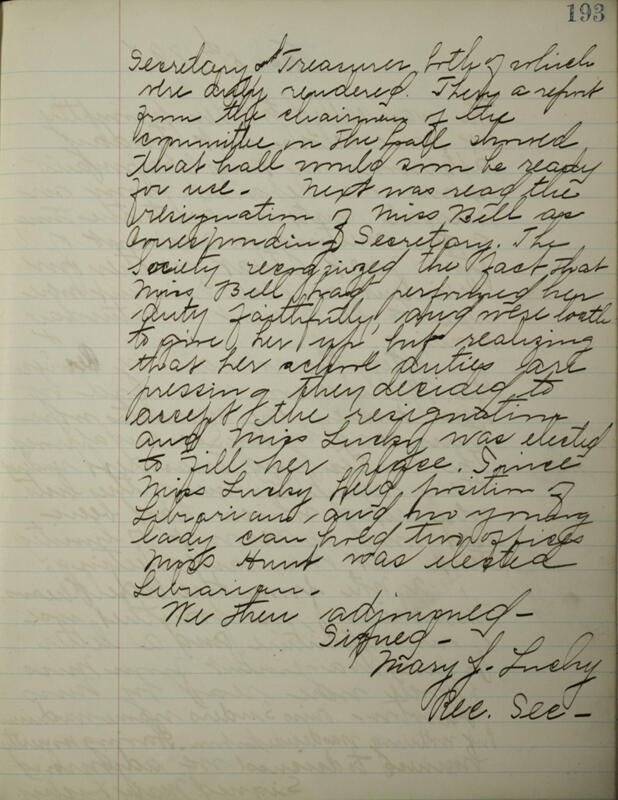 193
Secretary & Treasurer both of which
were duly rendered. Then a report
from the chairman of the
committee on the hall showed
that hall would soon be ready
for use - Next was read the
resignation of Miss Bell as
Corresponding Secretary. The
Society recognized the fact that
Miss Bell had performed her
duty faithfully and were loath
to give her up, but realizing
that her school duties are
pressing they decided to
accept the resignation
and Miss Lucky was elected
to fill her place. Since
Miss Lucky held position of
Librarian, and no young
lady can hold two offices
Miss Hunt was elected
Librarian -
We then adjourned -
Signed -
Mary J. Lucky
Rec. Sec -